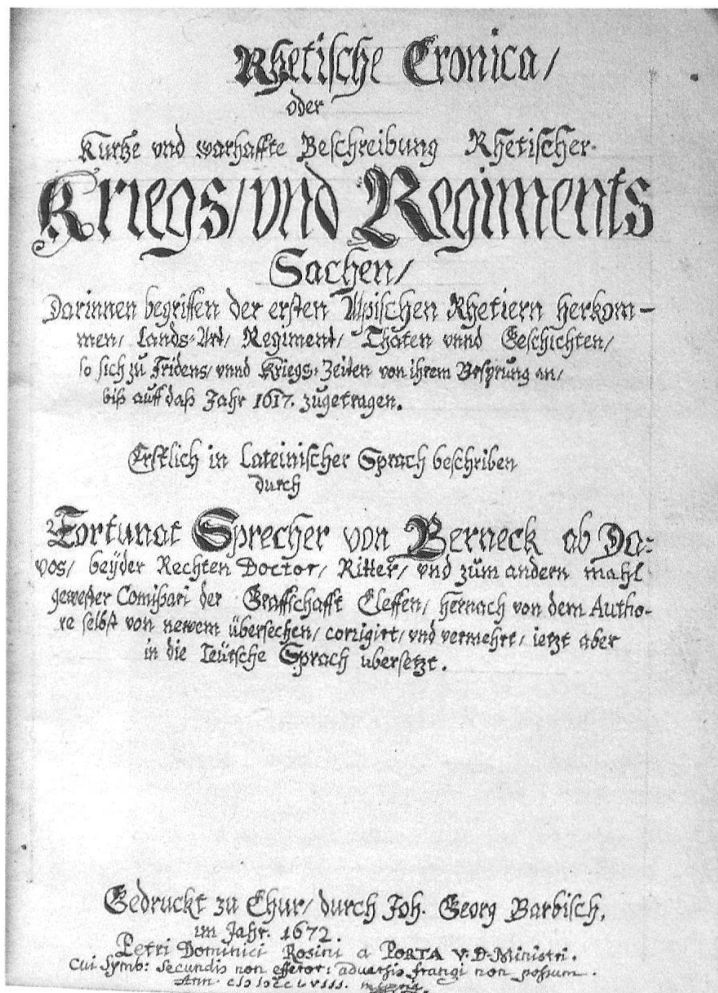 Rhetische Cronica/
oder
Kurtze vnd warhaffte Beschreibung Rhetischer
Kriegs/vnd Regiments
Sachen/
Darinnen begriffen der ersten Alpischen Rhetiern herkom-
men/ Lands-Art/ Regiment/ Thaten vnnd Geschichten/
so sich zu Fridens/ vnnd Kriegs-Zeiten von ihrem Vrsprung an/
biß auff daß Jahr 1617. zugetragen.
Erstlich in Lateinischer Sprach beschriben
durch
Fortunat Sprecher von Berneck ab Da-
vos/ beÿder Rechten Doctor/ Ritter/ vnd zum andern mahl
gewester Comißari der Graffschafft Cleffen/ hernach von dem Autho-
re selbst von newem übersechen/ corrigirt/ vnd vermehrt/ ietzt aber
in die Teütsche Sprach ubersetzt.
Gedruckt zu Chur/ durch Joh. Georg Barbisch.
im Jahr. 1672.
Petri Dominici Rosini a PORTA V. D. Ministri.
Cui Symb: Secundis non efferor: adversis frangi non possum.
Ann.